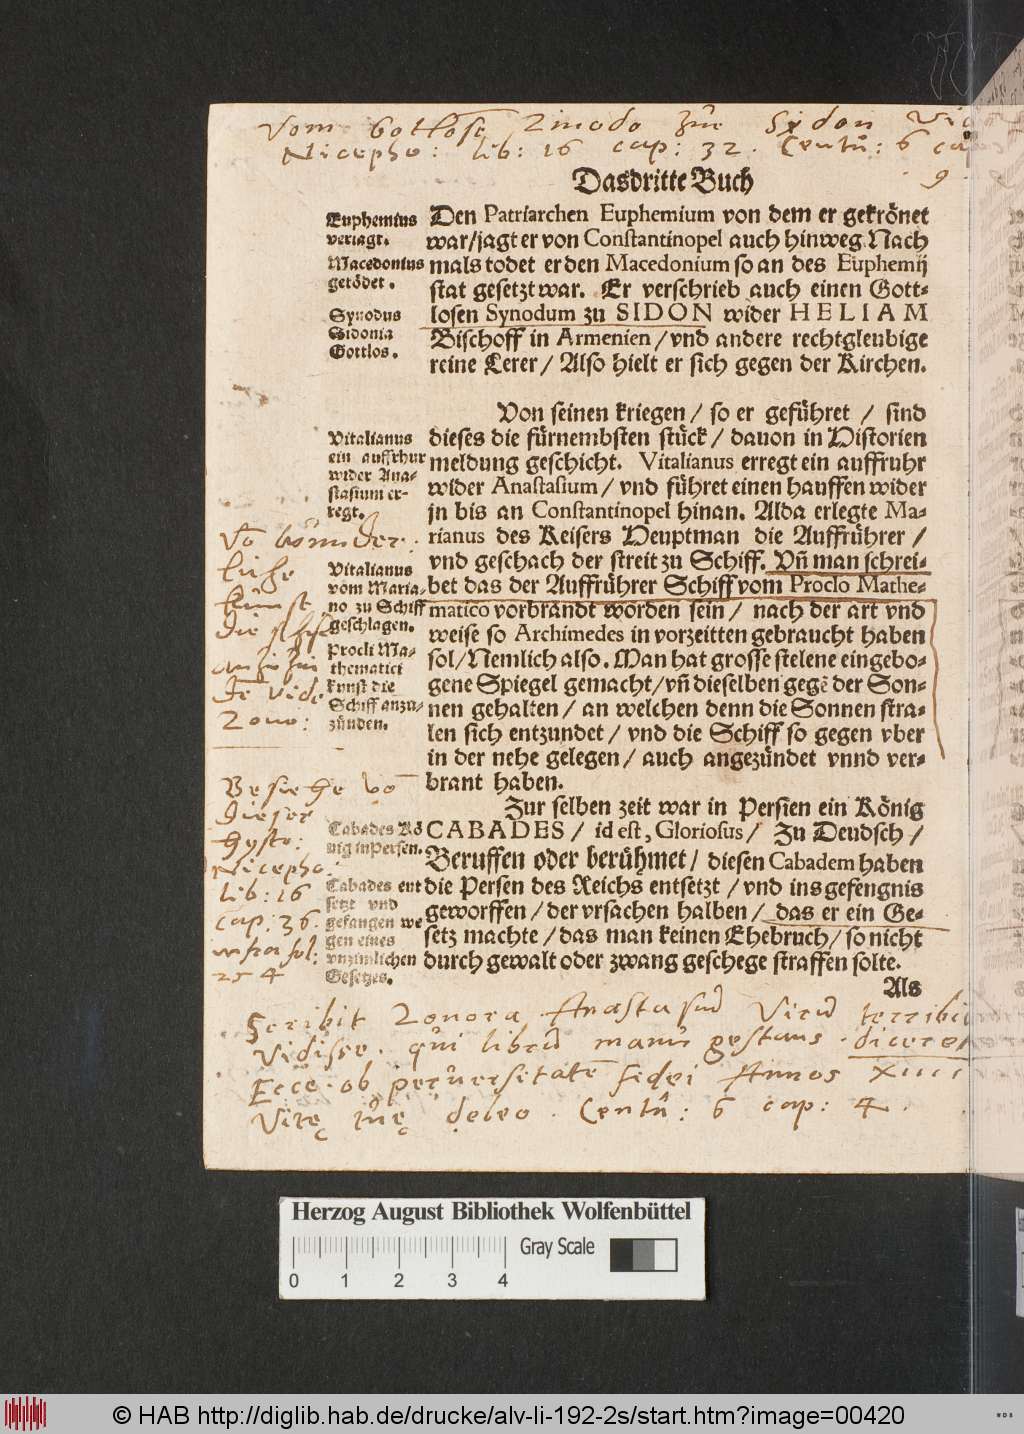 Vom Gottlose Zinodo zů Sidon
Nicepho: lib: 16 cap: 32. Centũ: 6 ca
9
Das dritte Buch
Euphemius
veriagt.
Macedonius
getödet.
Synodus
Sidonia
Gottlos.
Den Patriarchen Euphemium von dem er gekrönet
war/jagt er von Constantinopel auch hinweg. Nach
mals todet er den Macedonium so an des Euphemij
stat gesetzt war. Er verschrieb auch einen Gott-
losen Synodum zu SIDON wider HELIAM
Bischoff in Armenien/vnd andere rechtgleubige
reine Lerer/ Also hielt er sich gegen der Kirchen.
Vitalianus
ein auffrhur
wider Ana-
stasium er-
regt.
Vitalianus
vom Maria-
no zu Schiff
geschlagen.
Procli Ma-
thematici
kunst die
Schiff anzu-
zünden.
Von seinen kriegen/ so er geführet / sind
dieses die fürnembsten stück/ dauon in Historien
meldung geschicht. Vitalianus erregt ein auffruhr
wider Anastasium/ vnd führet einen hauffen wider
jn bis an Constantinopel hinan. Alda erlegte Ma-
rianus des Keisers Heuptman die Auffrührer /
vnd geschach der streit zu Schiff. Vñ man schrei-
bet das der Auffrührer Schiff vom Proclo Mathe-
matico vorbrandt worden sein/ nach der art vnd
weise so Archimedes in vorzeitten gebraucht haben
sol/Nemlich also. Man hat grosse stelene eingebo-
gene Spiegel gemacht/vñ dieselben gegẽ der Son-
nen gehalten/ an welchen denn die Sonnen stra-
len sich entzundet/ vnd die Schiff so gegen vber
in der nehe gelegen/ auch angezündet vnnd ver-
brant haben.
die schife
vide
Zono:
Besiehe vō
dieser
hysto:
Nicepho:
lib: 16
cap: 36.
infra fol:
254
Cabades Kö
nig in Persen.
Cabades ent
setzt vnd
gefangen we
gen eines
vnzimlichen
Gesetzes.
Zur selben zeit war in Persien ein König
CABADES/ id est, Gloriosus/ Zu Deudsch/
Beruffen oder berühmet/ diesen Cabadem haben
die Persen des Reichs entsetzt/vnd ins gefengnis
geworffen/der vrsachen halben/ das er ein Ge-
setz machte/das man keinen Ehebruch/so nicht
durch gewalt oder zwang geschege straffen solte.
Als
Scribit Zonora Anastasiũ Virũ terribi
Vidisse. qui librũ manu gestans dicere
Ecce ob peruersitatē fidei Annos XIIII
Vitę tuę deleo. Centũ: 6 cap: 4.
Herzog August Bibliothek Wolfenbüttel
0 1 2 3 4
Gray Scale
© HAB http://diglib.hab.de/drucke/alv-li-192-2s/start.htm?image=00420